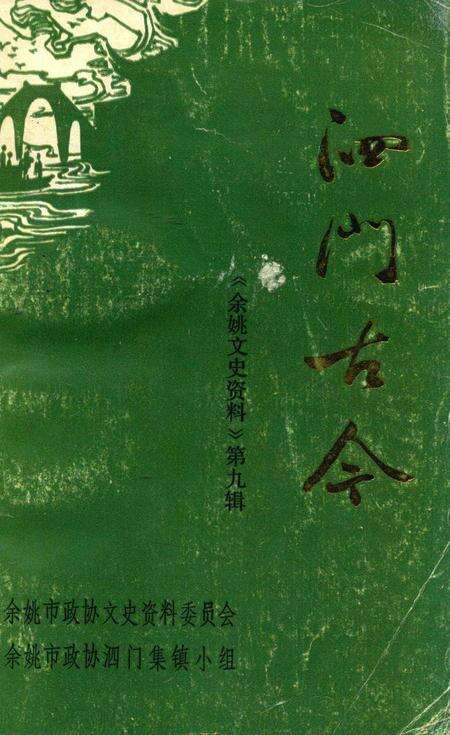 泗门古今
《余姚文史资料》第九辑
余姚市政协文史资料委员会
余姚市政协泗门集镇小组